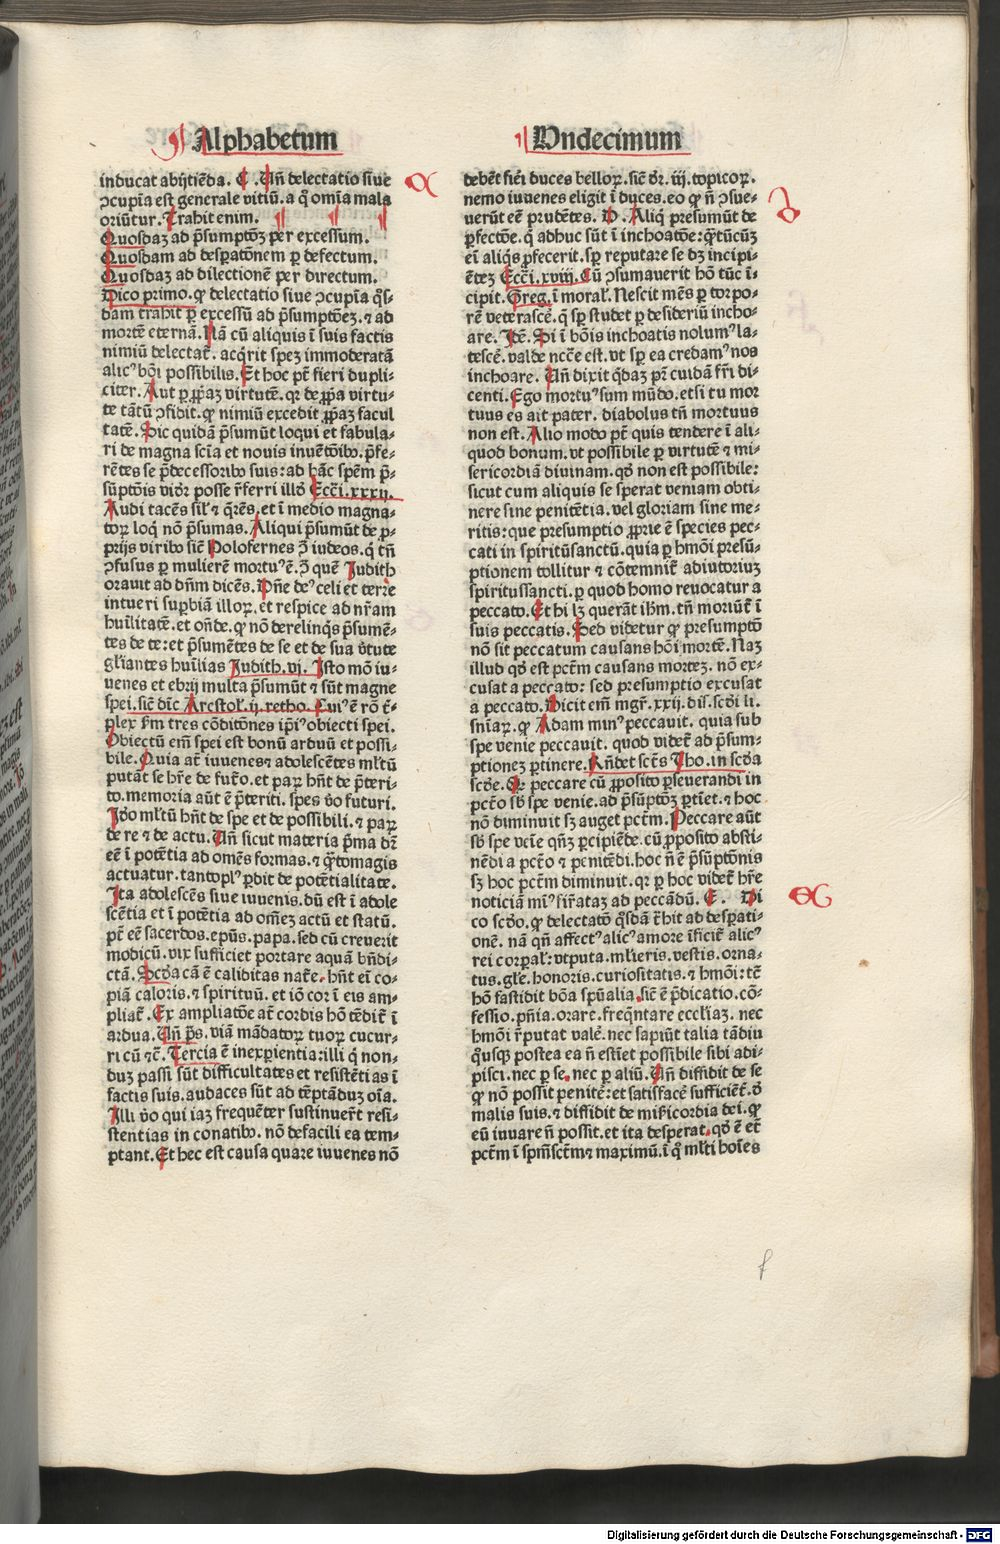 Alphabetum
inducat abijtiēda. C. Uñ delectatio siue
ꝯcupīa est generale vitiū. a q̄ om̄ia mala
oriūtur. Trahit enim.
Quosdaꝫ ad p̄sumptōꝫ per excessum.
Quosdam ad despatōnem ꝑ defectum.
Quosdaꝫ ad dilectionē per directum.
Dico primo. ꝙ delectatio siue ꝯcupīa q̄s⸗
dam trahit ꝑ excessū ad p̄sumptōeꝫ. ⁊ ad
mortē eternā. Nā cū aliquis ī suis factis
nimiū delectat᷑. acq̄rit speꝫ immoderatā
alicꝰ bōi possibilis. Et hoc pt̄ fieri dupli⸗
citer. Aut ꝑ ꝓpͥaꝫ virtutē. qꝛ de ꝓpͥa virtu⸗
te tātū ꝯfidit. ꝙ nimiū excedit ꝓpͥaꝫ facul
tatē. Sic quidā p̄sumūt loqui et fabula⸗
ri de magna scīa et nouis inuētōibꝰ. p̄fe⸗
rētes se p̄decessoribꝰ suis: ad hāc spēm p̄⸗
sūptōis vid᷑r posse r̄ferri illđ Ecci. xxxij.
Audi tacēs sil̄ ⁊ q̄rēs. et ī medio magna⸗
toꝝ loq̄ nō p̄sumas. Aliqui p̄sumūt de ꝓ⸗
prijs viribꝰ sic̄ Holofernes ꝯ̄ iudeos. q̄ tñ
ꝯfusus ꝑ mulierē mortuꝰ ē. ꝯ̄ quē Judith
orauit ad dn̄m dicēs. Dn̄e deꝰ celi et terre
intueri suꝑbiā illoꝝ. et respice ad nr̄am
huīlitatē. et on̄de. ꝙ nō derelinq̄s p̄sumē⸗
tes de te: et p̄sumētes de se et de sua v̄tute
gl̄iantes huīlias Judith. vi. Isto mō iu⸗
uenes et ebrij multa p̄sumūt ⁊ sūt magne
spei. sic̄ dīc Arestoł. ij. retho. Cuiꝰ ē rō t̄⸗
plex ẜm tres cōditōnes ip̄iꝰ obiecti spei.
Obiectū em̄ spei est bonū arduū et possi⸗
bile. Quia at̄ iuuenes ⁊ adolescētes ml̄tū
putāt se hr̄e de fut͛o. et paꝝ hn̄t de p̄teri⸗
to. memoria aūt ē p̄teriti. spes v̄o futuri.
Iđo ml̄tū hn̄t de spe et de possibili. ⁊ paꝝ
de re ⁊ de actu. Uñ sicut materia p̄ma dꝫ
eē ī potētia ad omēs formas. ⁊ q̄ntomagis
actuatur. tantoplꝰ ꝑdit de potētialitate.
Ita adolescēs siue iuuenis. dū est ī adole
scētia et ī potētia ad om̄eꝫ actū et statū.
pt̄ eē sacerdos. ep̄us. papa. sed cū creuerit
modicū. vix sufficiet portare aquā bn̄di⸗
ctā. Scđa cā ē caliditas nat᷑e. hn̄t ei co⸗
piā caloris. ⁊ spirituū. et iō cor ī eis am⸗
pliat᷑. Ex ampliatōe at̄ cordis hō tēdit᷑ ī
ardua. Uñ p̄s. viā mādatoꝝ tuoꝝ cucur⸗
ri cū ⁊c̄. Tercia ē inexꝑientia: illi q̄ non⸗
duꝫ passi sūt difficultates et resistētias ī
factis suis. audaces sūt ad tēptāduꝫ oīa.
Illi v̄o qui iaꝫ frequēter sustinuer̄t resi⸗
stentias in conatibꝰ. nō defacili ea tem⸗
ptant. Et hec est causa quare iuuenes nō
Undecimum
debēt fieri duces belloꝝ. sic̄ d᷑r. iij. topicoꝝ.
nemo iuuenes eligit ī duces. eo ꝙ n̄ ꝯsue⸗
uerūt eē prudētes. D. Aliq̄ presumūt de
ꝑfectōe. q̄ adhuc sūt ī inchoatōe: q̄ntūcūꝫ
ei aliq̄s ꝓfecerit. sp̄ reputare se dꝫ incipi⸗
ētēꝫ Ecci. xviij. Cū ꝯsumauerit hō tūc ī⸗
cipit. Greg. ī morał. Nescit mēs ꝑ torpo⸗
rē veterascē. q̄ sp̄ studet ꝑ desideriū incho⸗
are. Itē. Si ī bōis inchoatis nolumꝰ la⸗
tescē. valde nc̄ce est. vt sp̄ ea credamꝰ nos
inchoare. Uñ dixit q̄daꝫ pr̄ cuidā fr̄i di⸗
centi. Ego mortuꝰ sum mūdo. etsi tu mor
tuus es ait pater. diabolus tñ mortuus
non est. Alio modo pt̄ quis tendere ī ali⸗
quod bonum. vt possibile ꝑ virtutē ⁊ mi⸗
sericordiā diuinam. qđ non est possibile:
sicut cum aliquis se sperat veniam obti⸗
nere sine penitētia. vel gloriam sine me⸗
ritis: que presumptio ꝓprie ē species pec⸗
cati in spiritūsanctū. quia ꝑ hm̄oi presū⸗
ptionem tollitur ⁊ cōtemnit᷑ adiutoriuꝫ
spiritussancti. ꝑ quod homo reuocatur a
peccato. Et hi lꝫ querāt ihm̄. tñ moriūt᷑ ī
suis peccatis. Sed videtur ꝙ presumptō
non sit peccatum causans hōi mortē. Naꝫ
illud qđ est pctm̄ causans morteꝫ. nō ex⸗
cusat a peccato: sed presumptio excusat
a peccato. Dicit em̄ mgr̄. xxij. dis. scđi li.
sn̄iaꝝ. ꝙ Adam minꝰ peccauit. quia sub
spe venie peccauit. quod videt᷑ ad p̄sum⸗
ptioneꝫ ꝑtinere. Rn̄det sct̄s Tho. in scđa
scđe. Qꝛ peccare cū ꝓposito ꝑseuerandi in
pct̄o sb̄ spe venie. ad p̄sūptōꝫ ꝑtiet. ⁊ hoc
nō diminuit sꝫ auget pctm̄. Peccare aūt
sb̄ spe veīe qn̄ꝫ ꝑcipiēde. cū ꝓposito absti⸗
nēdi a pct̄o ⁊ penitēdi. hoc n̄ ē p̄sūptōnis
sꝫ hoc pctm̄ diminuit. qꝛ ꝑ hoc videt᷑ hr̄e
noticiā miꝰ fir̄ataꝫ ad peccādū. E. Di
co scđo. ꝙ delectatō q̄sdā t̄hit ad despati⸗
onē. nā qn̄ affectꝰ alicꝰ amore īficit᷑ alicꝰ
rei corꝑał: vtputa ml̄ieris. vestis. orna⸗
tus. gl̄e. honoris. curiositatis. ⁊ hm̄oi: tc̄
hō fastidit bōa sp̄ualia. sic̄ ē p̄dicatio. cō⸗
fessio. pn̄ia. orare. freq̄ntare eccl̄iaꝫ. nec
hm̄oi r̄putat valē. nec sapiūt talia tādiu
q̄usqꝫ postea ea n̄ estiet possibile sibi adi⸗
pisci. nec ꝑ se. nec ꝑ aliū. Uñ diffidit de se
ꝙ nō possit penitē: et satisfacē sufficiēt. đ
malis suis. ⁊ diffidit de mīcordia dei. ꝙ
eū iuuare n̄ possit. et ita desperat. qđ ē et̄
pctm̄ ī spm̄sctm̄ ⁊ maximū. ī q̄ ml̄ti hoīes
Digitalisierung gefördert durch die Deutsche Forschungsgemeinschaft - DFG